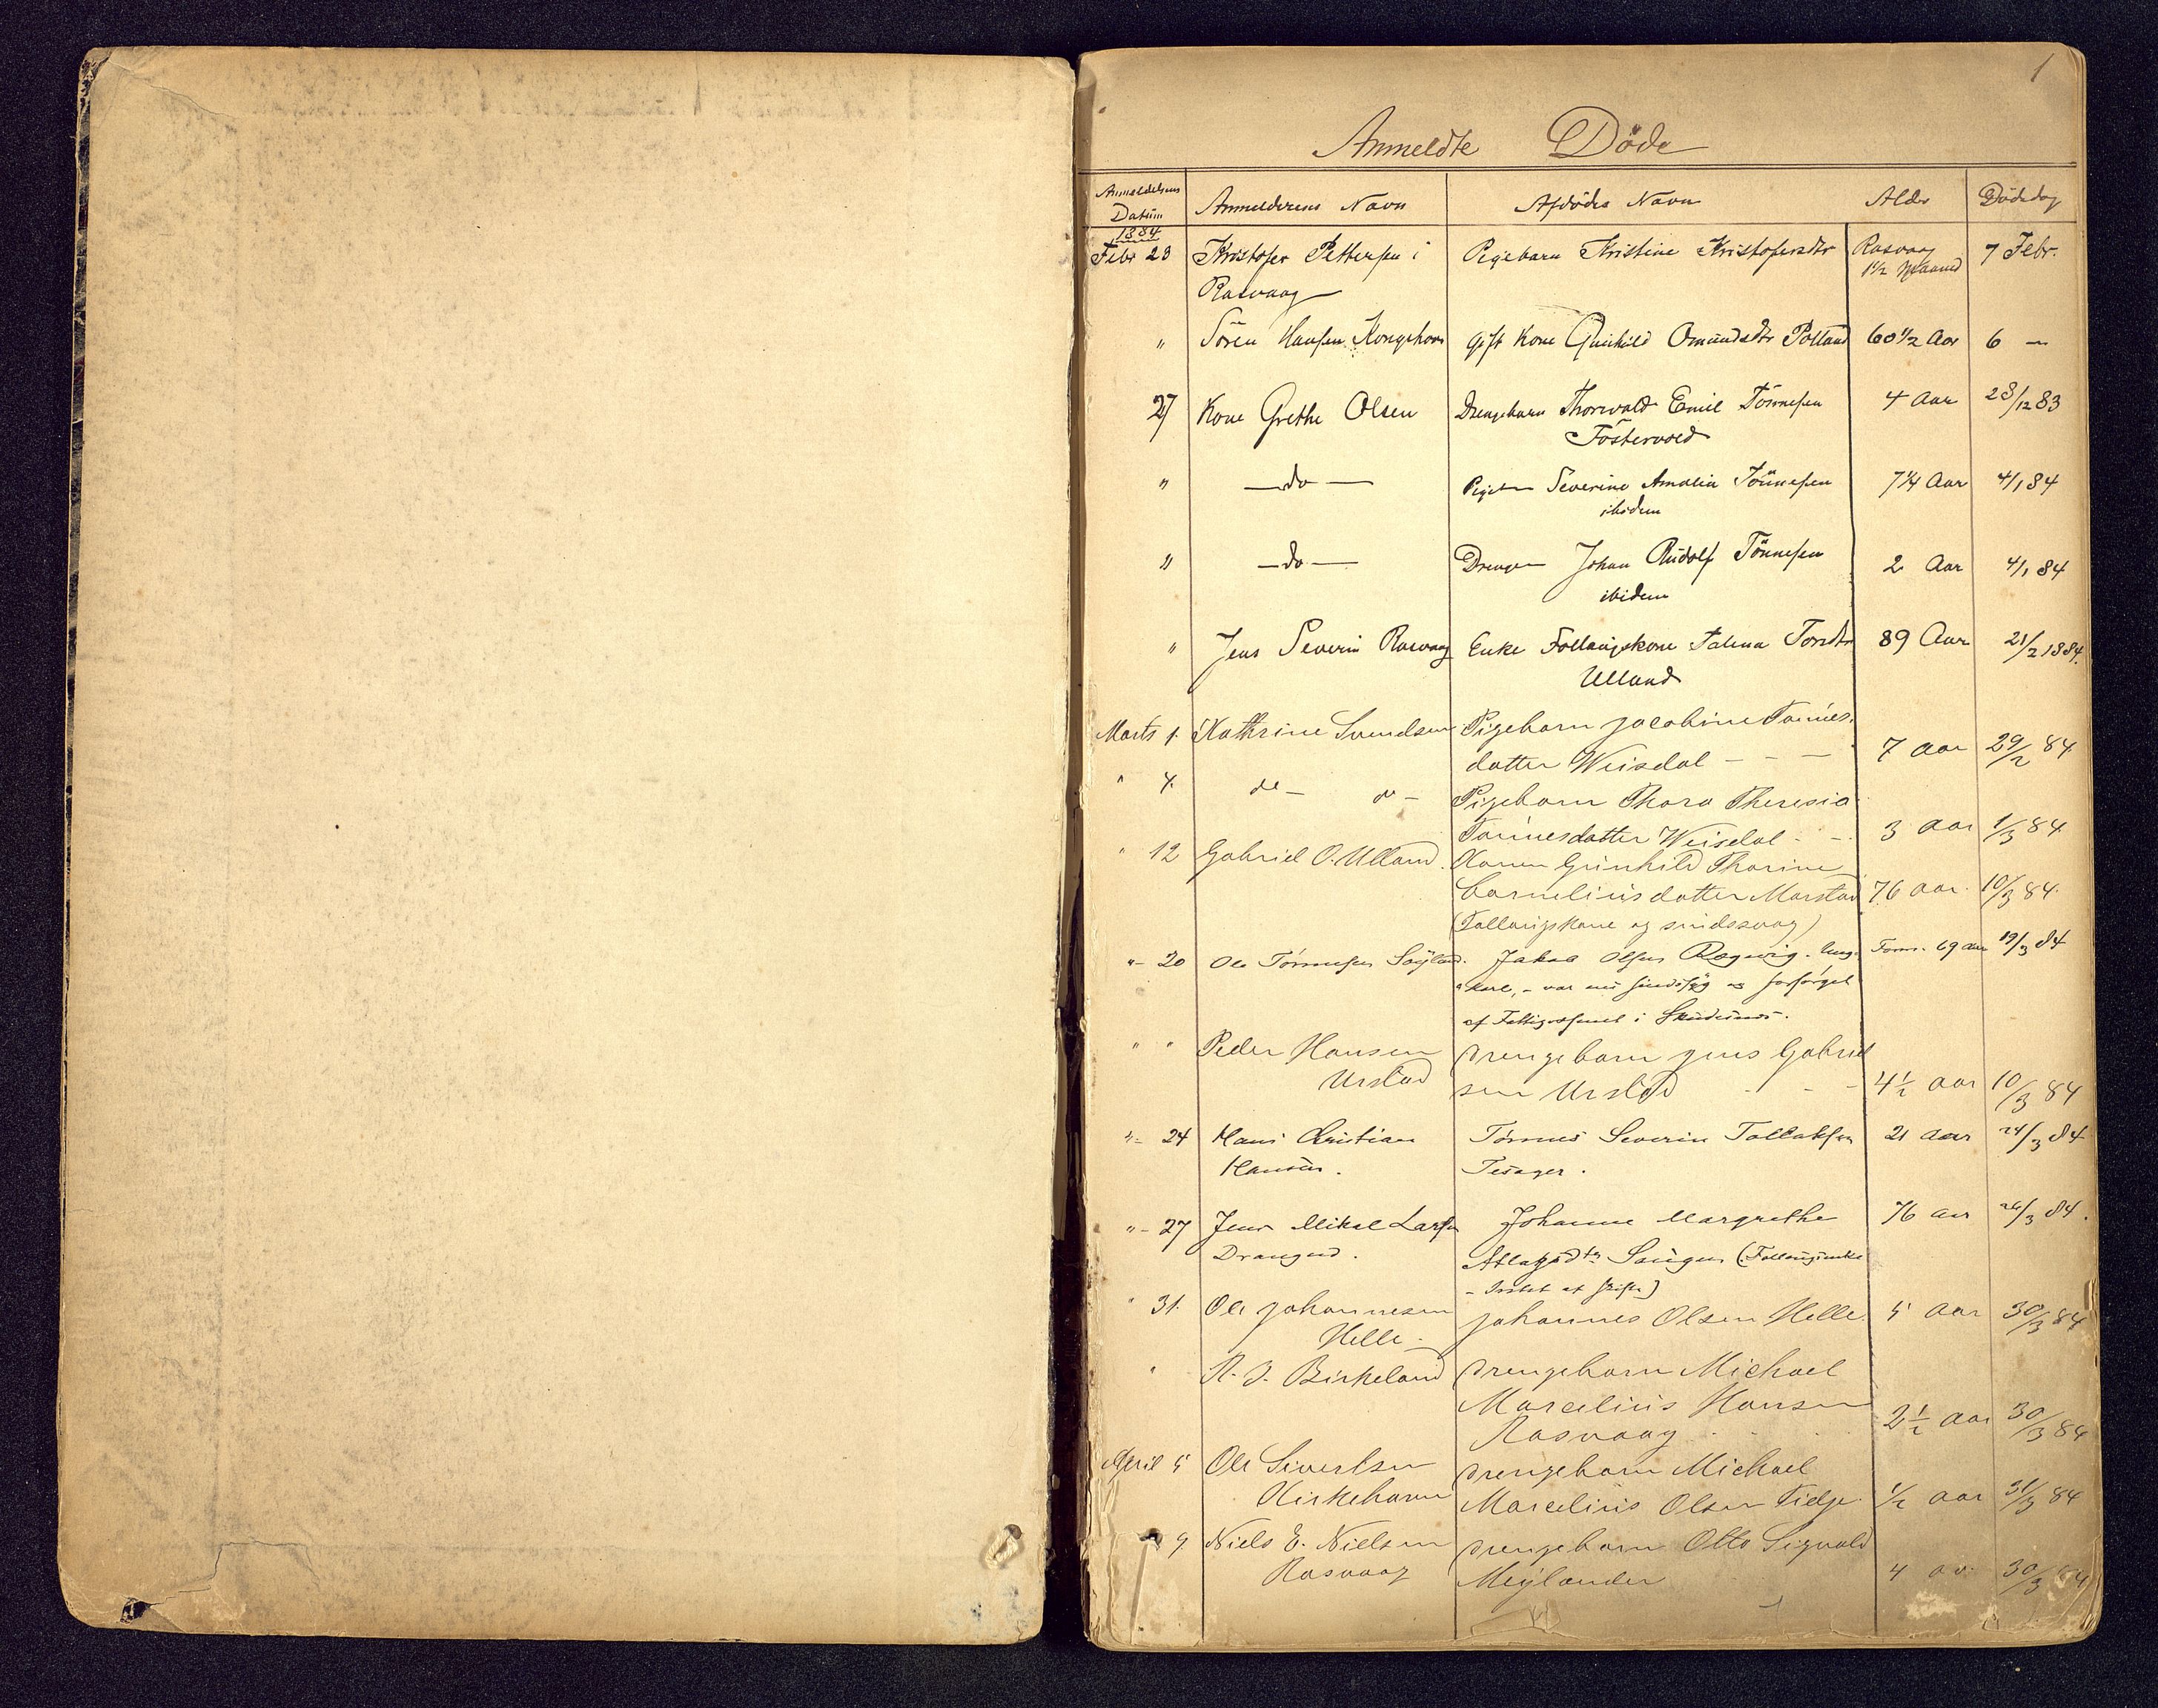 1
Anmeldte Döde
Anmeldelsens Datum Anmelderens Navn Afdödes Navn Alder Dödsdag
1884
Febr 23 Kristofer Pettersen i Pigebarn Kristine Kristofersdtr Rasvaag 7 Febr.
Rasvaag 1½ Maaned
" Sören Hansen Kongshavn gift Kone Gunhild Omundsdtr 60½ Aar 6 —
27 Kone Grethe Olsen Drengebarn Thorvald Emil Tönnesen 4 Aar 28/12 83
Föstervold
" —do— Pigeb— Severine Amalia Tönnesen 7¼ Aar 4/1 84
ibidem
" —do— Drengeb— Johan Rudolf Tönnesen 2 Aar 4/1 84
ibidem
" Jens Severin Rasvaag Enke Follaugskone Talena Torsdtr 89 Aar 21/2 1884.
Ulland
Marts 1. Kathrine Svendsen Pigebarn Jacobine Tönnes-
datter Weisdal — — — 7 aar 29/2 84
" 4. do — do — Pigebarn Thora Theresia
Tönnesdatter Weisdal - — 3 aar 1/3 84
" 12 Gabriel O. Ulland. Konen Gunhild Thorine
Corneliusdatter Marstad 76 aar. 10/3 84.
(Follaugskone og sindssvag)
"- 20 Ole Tönnesen Jakob Olsen Ung- 69 aar 19/3 84
karl, - var sindssyg og forsörget
af Fattigvæsenet i
" " Peder Hansen Drengebarn Jens Gabriel
Urstad sen Urstad - - - 4½ aar 10/3 84
"- 24 Hans Christian Tönnes Severin Tollaksen 21 aar 24/3 84
Hansen.
"- 27 Jens Mikal Larsen Johanne Margrethe 76 aar 26/3 84.
Drangeid.
" 31. Ole Johannesen Johannes Olsen Helle. 5 aar 30/3 84
Helle -
" Birkeland Drengebarn Michael
Marcelius Hansen
Rasvaag . . . 2½ aar 30/3 84
April 5 Ole Sivertsen Drengebarn Michael
Kirkehavn Marcelius Olsen Fidje. ½ aar 31/3 84
9. Niels E. Nielsen Drengebarn Otto Sigvald
Rasvaag Meylænder 4 30/3